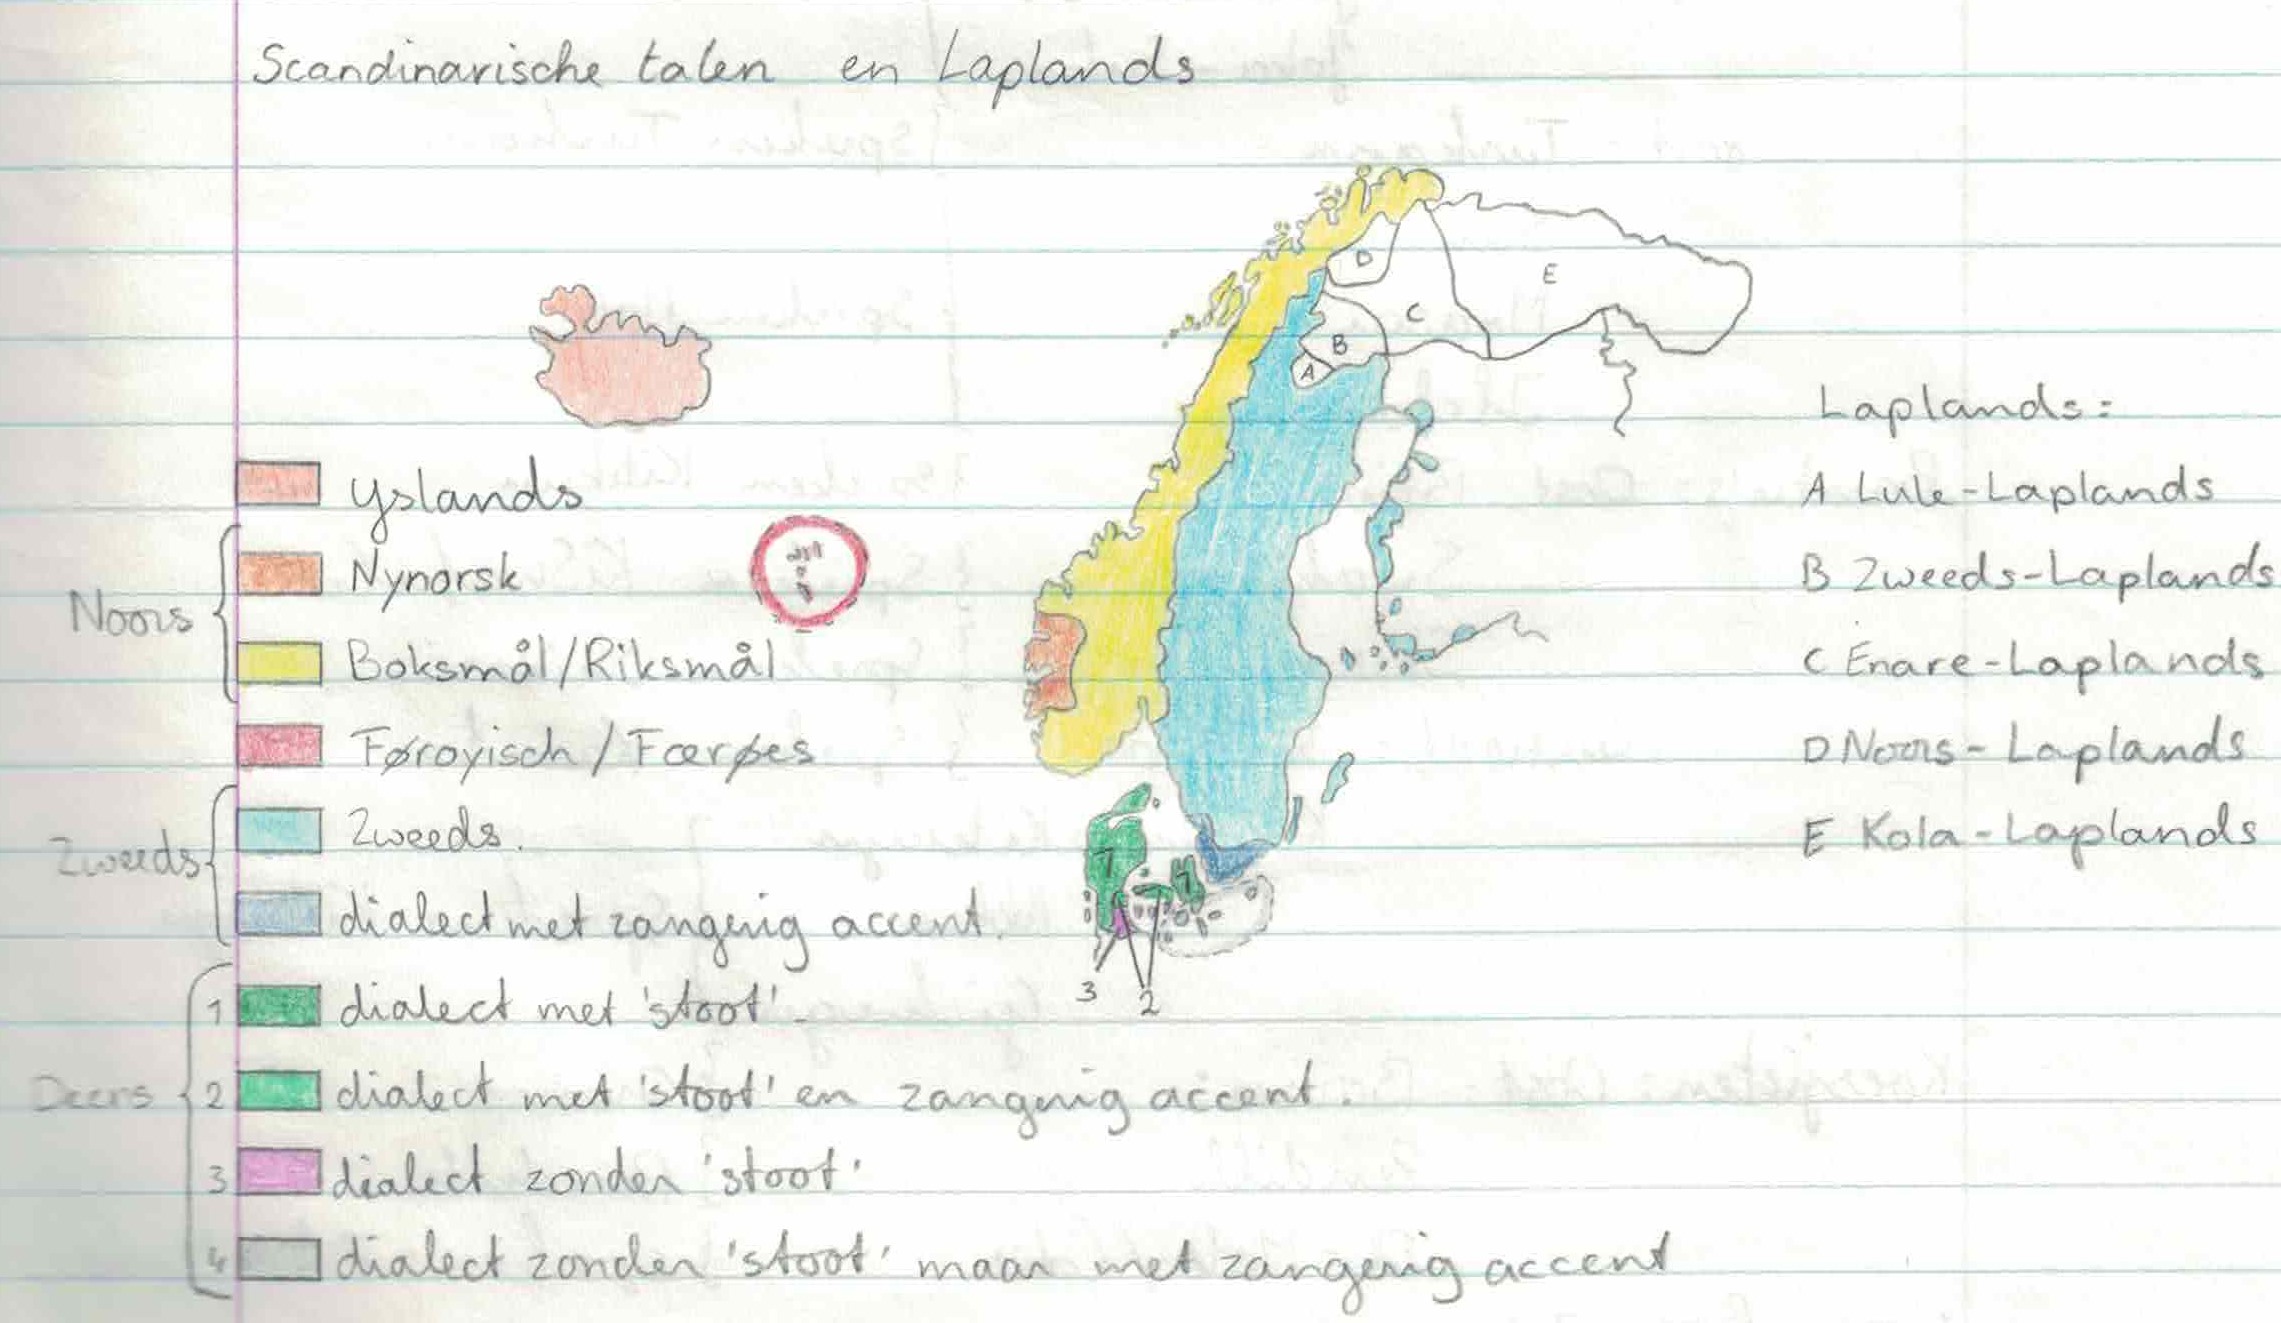 Scandinavische talen en Laplands
D
E
C
B
A
Laplands:
Yslands
A Lule-Laplands
Nynorsk
B Zweeds-Laplands
Noors
Boksmål/Riksmål
C Enare-Laplands
Førøyisch/Færøes
D Noors-Laplands
Zweeds.
E Kola-Laplands
Zweeds
1
1
dialect met zangerig accent.
3
2
1 dialect met 'stoot'.
Deens
2 dialect met 'stoot' en zangerig accent.
3 dialect zonder 'stoot'
4 dialect zonder 'stoot' maar met zangerig accent